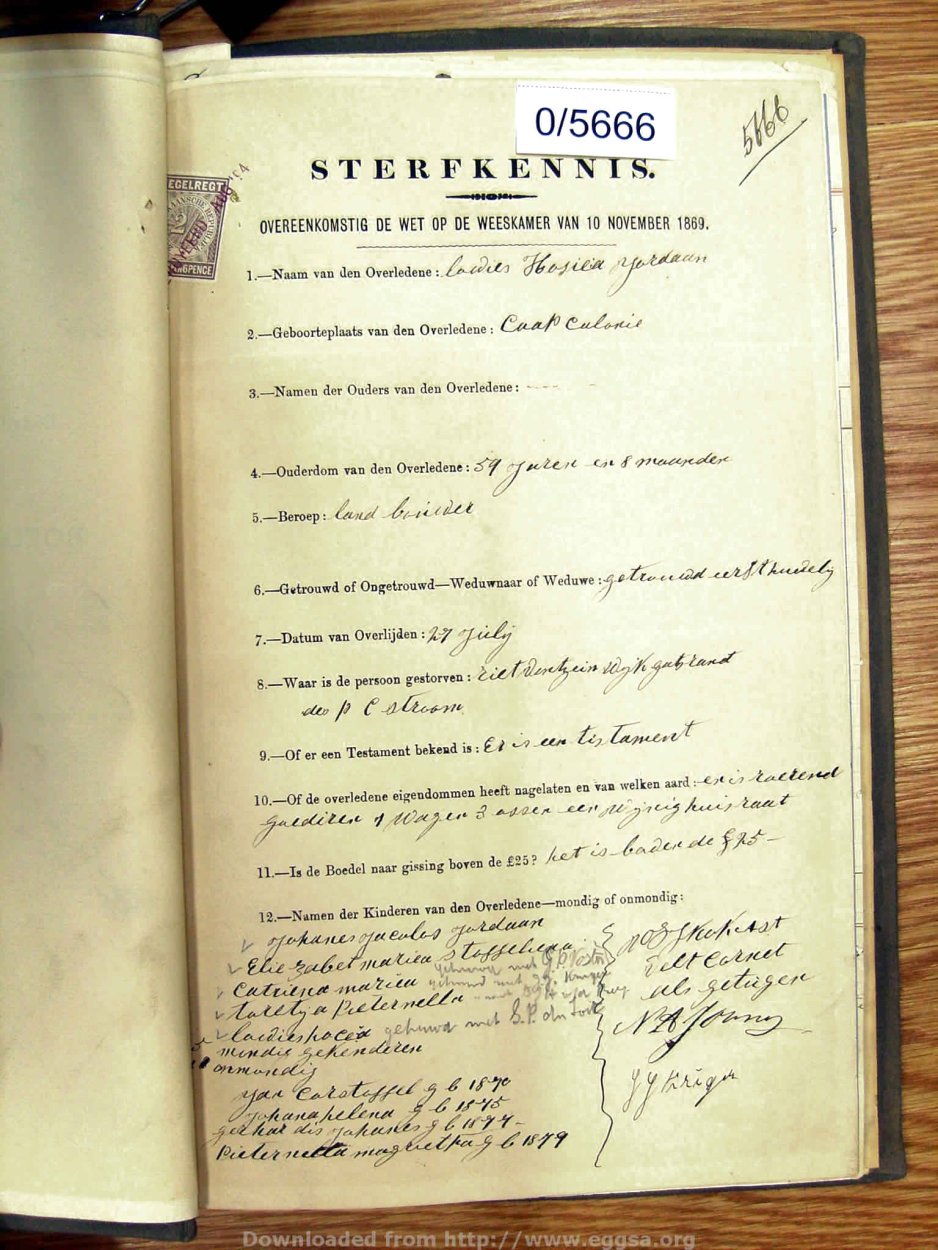 0/5666
5666
EGELREGT
STERFKENNIS.
OVEREENKOMSTIG DE WET OP DE WEESKAMER VAN 10 NOVEMBER 1869.
1.—Naam van den Overledene: Lowdies Hosiea Jordaan
2.—Geboorteplaats van den Overledene: Caap Colonie
3.—Namen der Ouders van den Overledene: - - -
4.—Ouderdom van den Overledene: 59 Jaren en 8 maanden
5.—Beroep: land bouwer
6.—Getrouwd of Ongetrouwd—Weduwnaar of Weduwe: getrouwd
7.—Datum van Overlijden: 27 July
8.—Waar is de persoon gestorven: wyk gatsrand
des P C stroom
9.—Of er een Testament bekend is: Er is een testament
10.—Of de overledene eigendommen heeft nagelaten en van welken aard: er is roerend
goederen 1 wagen 3 ossen een wynig huis raat
11.—Is de Boedel naar gissing boven de £25? het is boden de £25 —
12.—Namen der Kinderen van den Overledene—mondig of onmondig:
Johanes Jacobus Jordaan
Elie zabet mariea Stoffeliena
Catriena mariea
toretja Pieternella
lowdieshocea gehuwd met S.P.
mindie gekenderen
onmondig
Jan Carstoffel g b 1870
Johana helena g b 1875
gerhar dis Johanes g b 1877-
Pieternella magrietha g b 1879
Velt Cornet
als getuigen
J J Kriger
Downloaded from http://www.eggsa.org